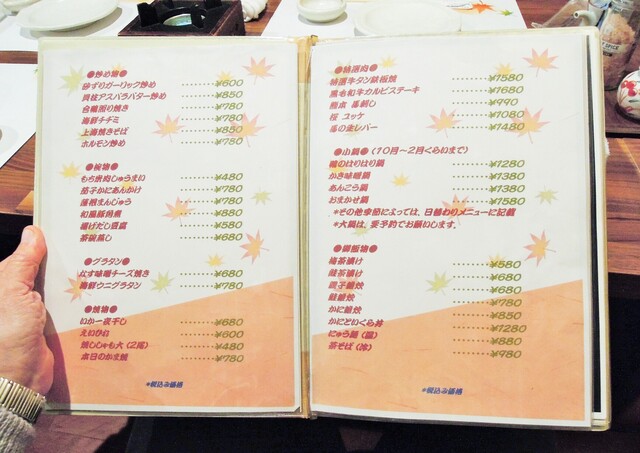 ●炒め物●
砂ずりガーリック炒め ········¥600
貝柱アスパラバター炒め ········¥850
台鰻照り焼き ········¥780
海鮮チヂミ ········¥780
上海焼きそば ········¥850
ホルモン炒め ········¥780
●椀物●
もち米肉しゅうまい ········¥480
茄子かにあんかけ ········¥780
蓮根まんじゅう ········¥780
和風豚角煮 ········¥880
揚げだし豆腐 ········¥580
茶碗蒸し ········¥680
●グラタン●
なす味噌チーズ焼き ········¥680
海鮮ウニグラタン ········¥780
●焼物●
いか一夜干し ········¥680
えいひれ ········¥600
焼ししゃも大（2尾） ········¥480
本日のかま焼 ········¥780
*税込み価格
●特選肉●
特選牛タン鉄板焼 ········¥1580
黒毛和牛カルビステーキ ········¥1680
熊本 馬刺し ········¥990
桜 ユッケ ········¥1080
馬の生レバー ········¥1480
●小鍋●（10月～2月くらいまで）
鴨のはりはり鍋 ········¥1280
かき味噌鍋 ········¥1380
あんこう鍋 ········¥1380
おまかせ鍋 ········¥1580
*その他季節によっては、日替わりメニューに記載
*大鍋は、要予約でお願いします。
●御飯物●
梅茶漬け ········¥580
鮭茶漬け ········¥680
親子雑炊 ········¥680
鮭雑炊 ········¥780
かに雑炊 ········¥850
かにといくら丼 ········¥1280
にゅう麺（温） ········¥880
茶そば（冷） ········¥980
*税込み価格